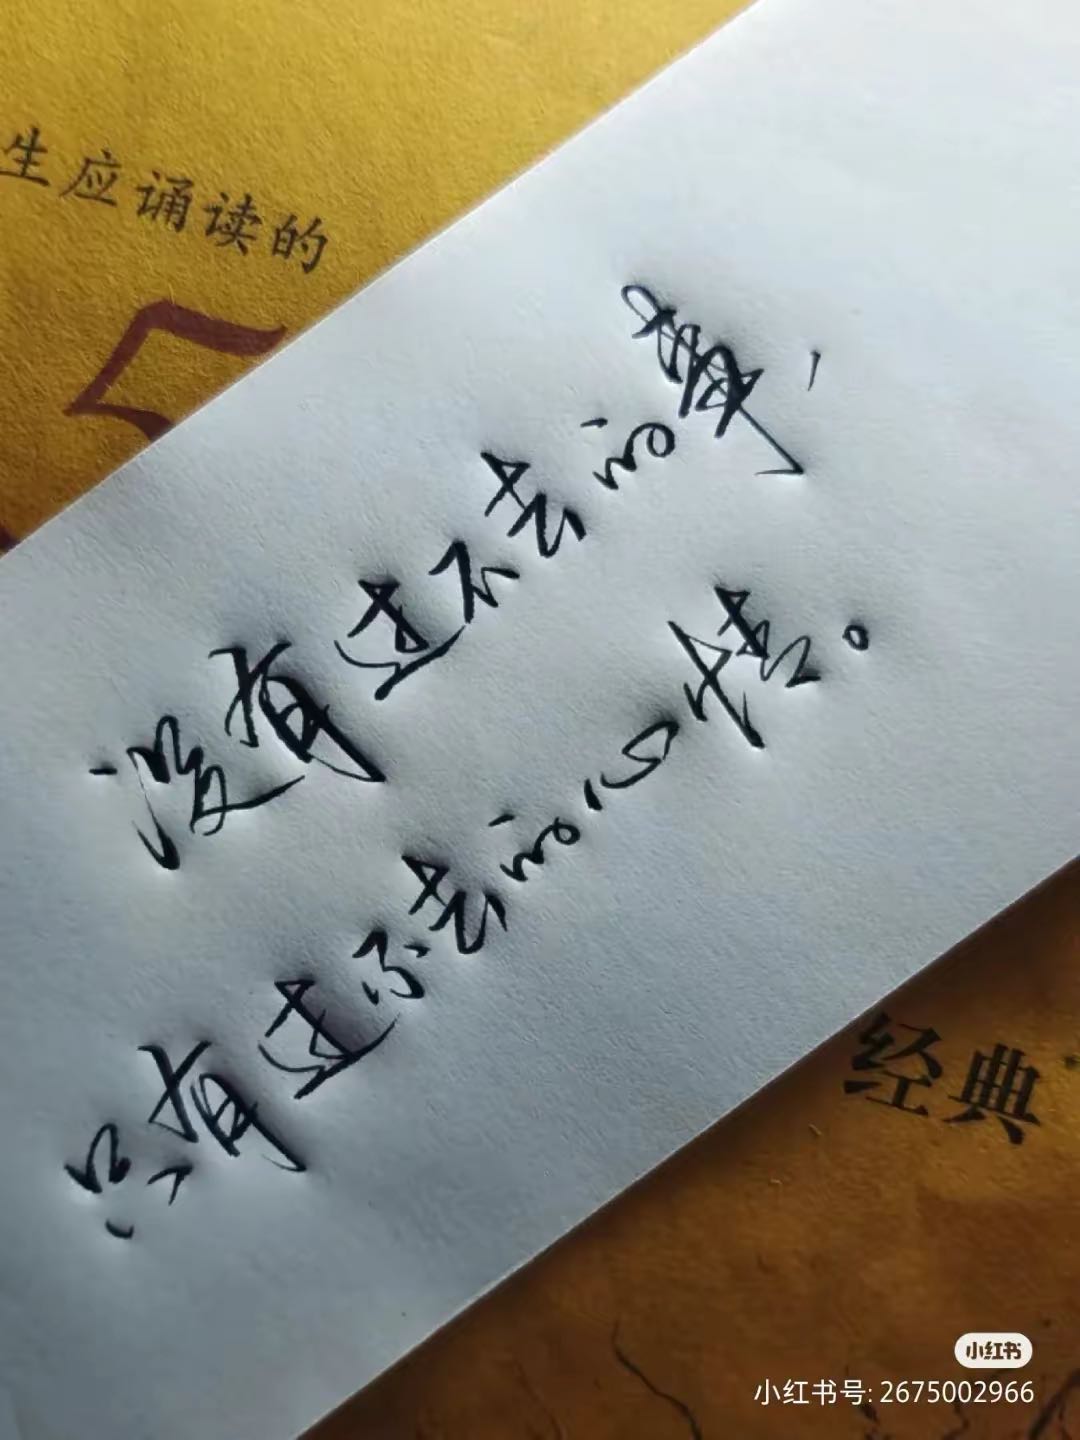 生应诵读的
没有过不去的事，
只有过不去的心情。
经典
小红书
小红书号: 2675002966